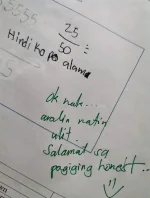 5555
25
50
Hindi ko po alam
5
ok nak...
aralin natin
ulit.
Salamat sa
pagiging honest..